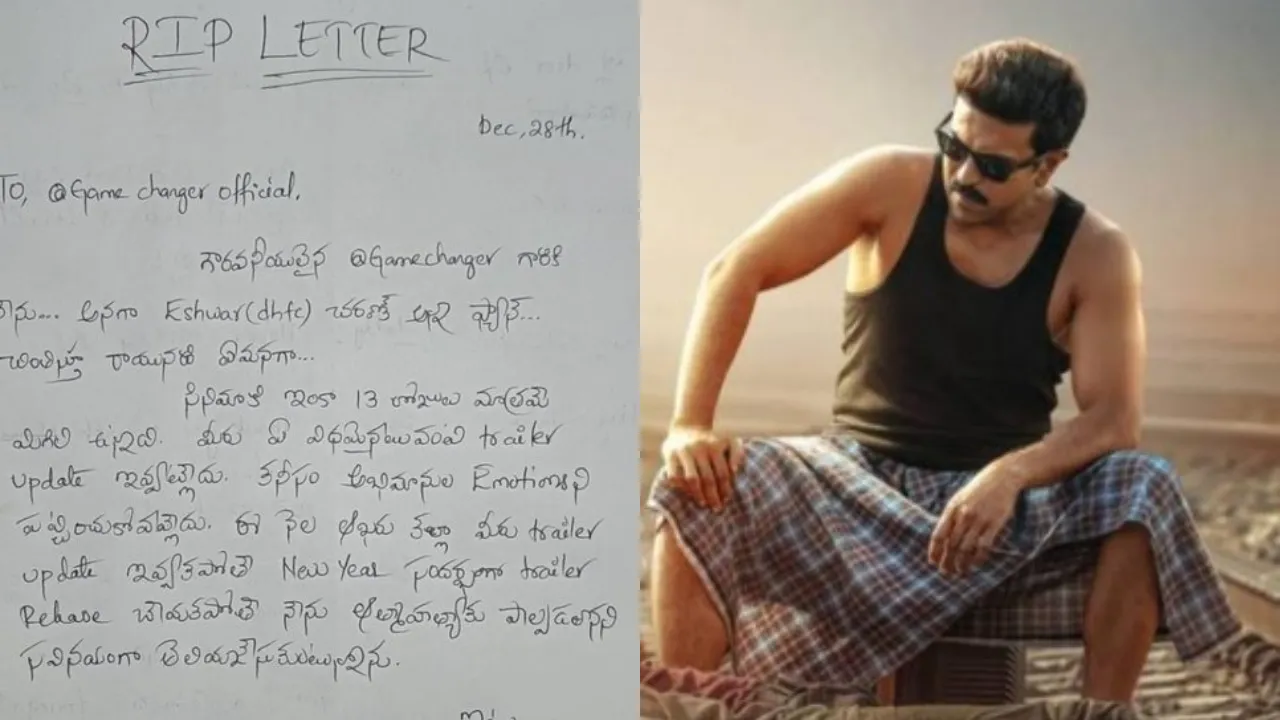 RIP LETTER
Dec, 28th.
TO, @Game changer official.
గౌరవనీయులైన @Gamechanger గారికి
నేను... అనగా Eshwar(dhfc) చరణ్ కి అనే ఫ్యాన్...
చింతిస్తూ రాయునది ఏమనగా...
సినిమాకి ఇంకా 13 రోజులు మాత్రమే
మిగిలి ఉన్నది. మీరు ఏ విధమైనటువంటి trailer
update ఇవ్వట్లేదు. కనీసం అభిమానుల Emotionsని
పట్టించుకోవట్లేదు. ఈ నెల ఆఖరు కల్లా మీరు trailer
update ఇవ్వకపోతే New Year సందర్భంగా trailer
Release చేయకపోతే నేను ఆత్మహత్యకు పాల్పడతానని
సవినయంగా తెలియజేసుకుంటున్నాను.